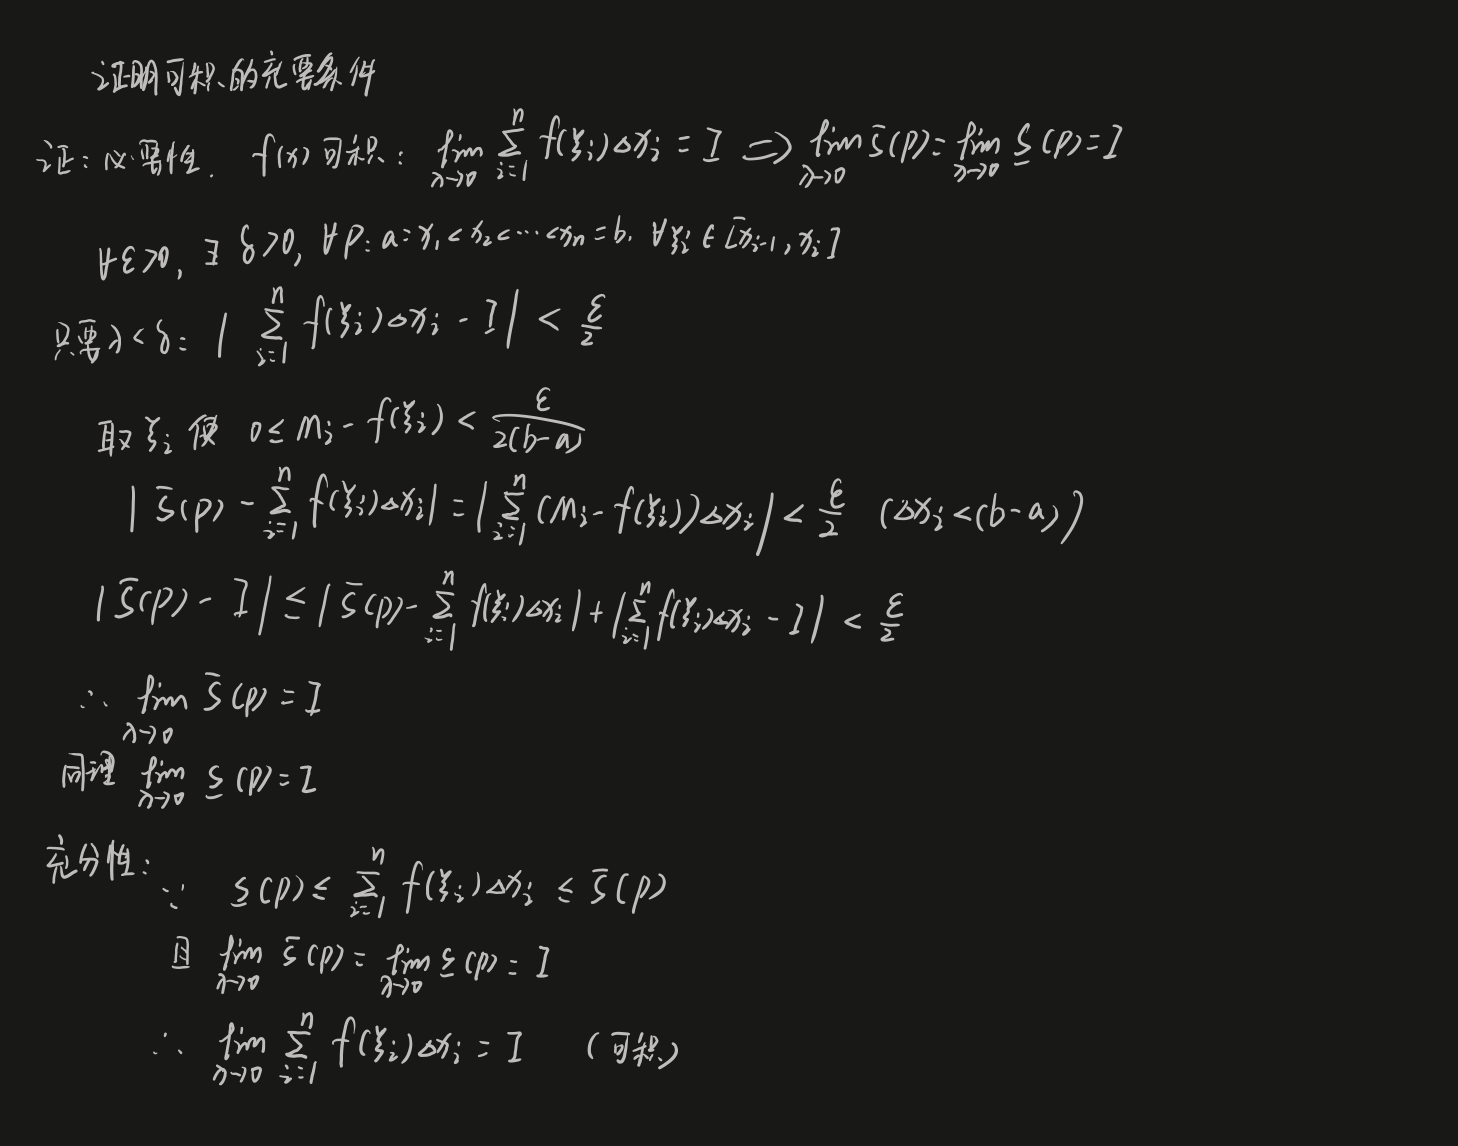 证明可积的充要条件
证：必要性. f(x)可积： lim_{λ→0} ∑_{i=1}^{n} f(ξ_i)Δx_i = I ⇒ lim_{λ→0} S̄(P) = lim_{λ→0} S̲(P) = I
∀ε>0, ∃ δ>0, ∀P: a=x_1<x_2<⋯<x_n=b. ∀ξ_i∈[x_{i-1}, x_i]
只要λ<δ: | ∑_{i=1}^{n} f(ξ_i)Δx_i - I | < ε/2
取ξ_i 使 0≤M_i-f(ξ_i)< ε/2(b-a)
| S̄(P) - ∑_{i=1}^{n} f(ξ_i)Δx_i | = | ∑_{i=1}^{n} (M_i-f(ξ_i))Δx_i | < ε/2 (Δx_i<(b-a))
| S̄(P) - I | ≤ | S̄(P) - ∑_{i=1}^{n} f(ξ_i)Δx_i | + | ∑_{i=1}^{n} f(ξ_i)Δx_i - I | < ε/2
∴ lim_{λ→0} S̄(P) = I
同理 lim_{λ→0} S̲(P) = I
充分性:
∵ S̲(P) ≤ ∑_{i=1}^{n} f(ξ_i)Δx_i ≤ S̄(P)
且 lim_{λ→0} S̄(P) = lim_{λ→0} S̲(P) = I
∴ lim_{λ→0} ∑_{i=1}^{n} f(ξ_i)Δx_i = I (可积)